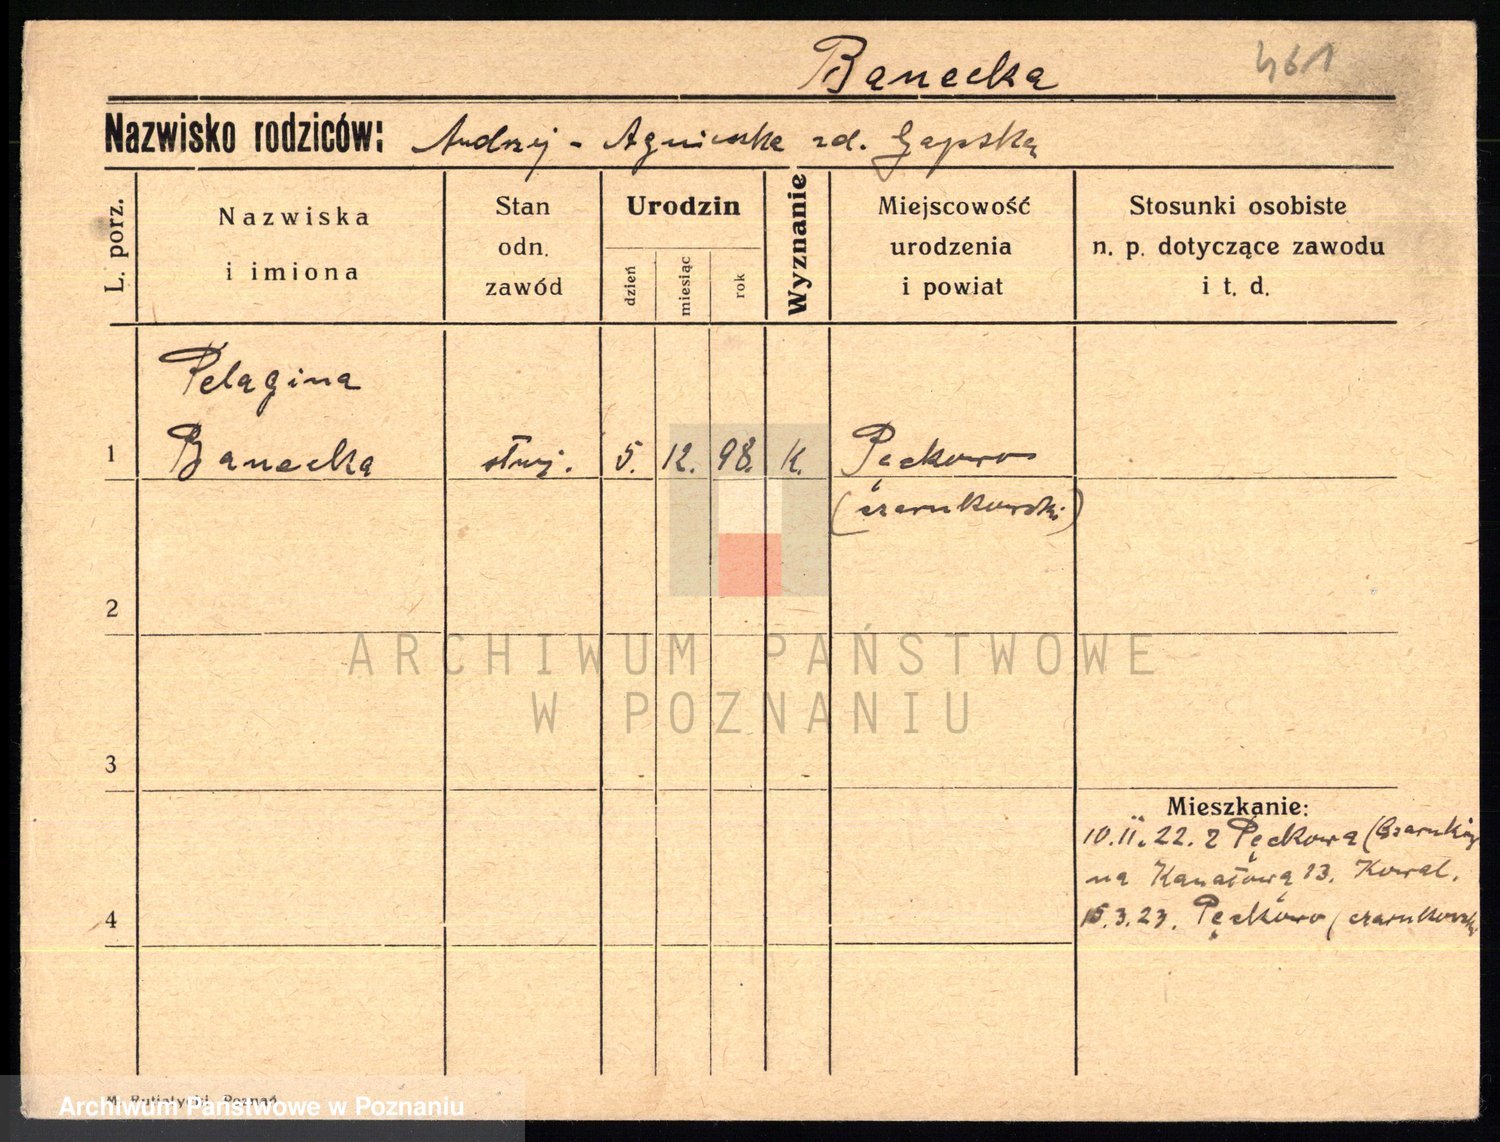 Banecka 461
Nazwisko rodziców: Andrzej - Agnieszka zd. Gapska
L. porz.
Nazwiska
i imiona
Stan
odn.
zawód
Urodzin
dzień
miesiąc
rok
Wyznanie
Miejscowość
urodzenia
i powiat
Stosunki osobiste
n. p. dotyczące zawodu
i t. d.
Pelagina
1 Banecka służ. 5. 12. 98. K. Pęckowo
(czarnkowski)
2
ARCHIWUM PAŃSTWOWE
W POZNANIU
3
Mieszkanie:
10.II.22. z Pęckowa (Czarnków
na Kanałową 13. Kowal.
4
15.3.23. Pęckowo (czarnkowski
M. Putiatycki, Poznań
Archiwum Państwowe w Poznaniu